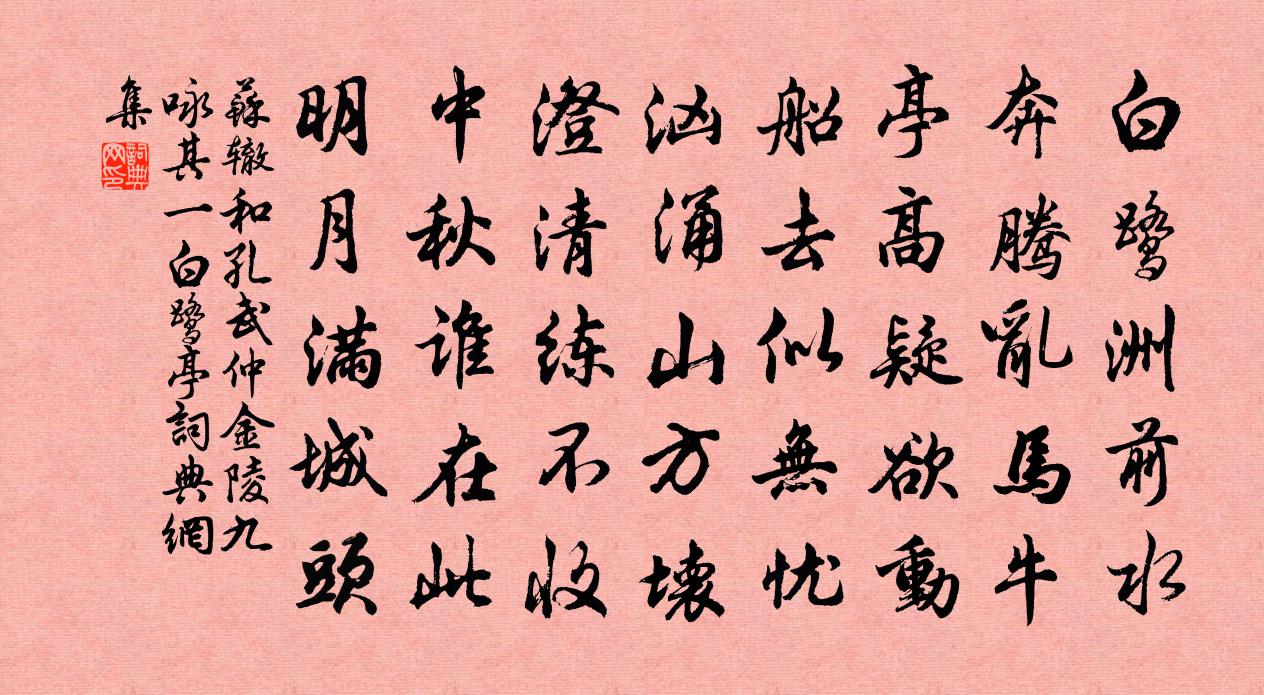 白鹭洲前水
奔腾亂馬牛
亭高疑欲動
船去似無忧
汹涌山方壊
澄清练不收
中秋谁在此
明月满城頭
蘇辙和孔武仲金陵九
咏其一白鹭亭詞典網
集
詞典
网印